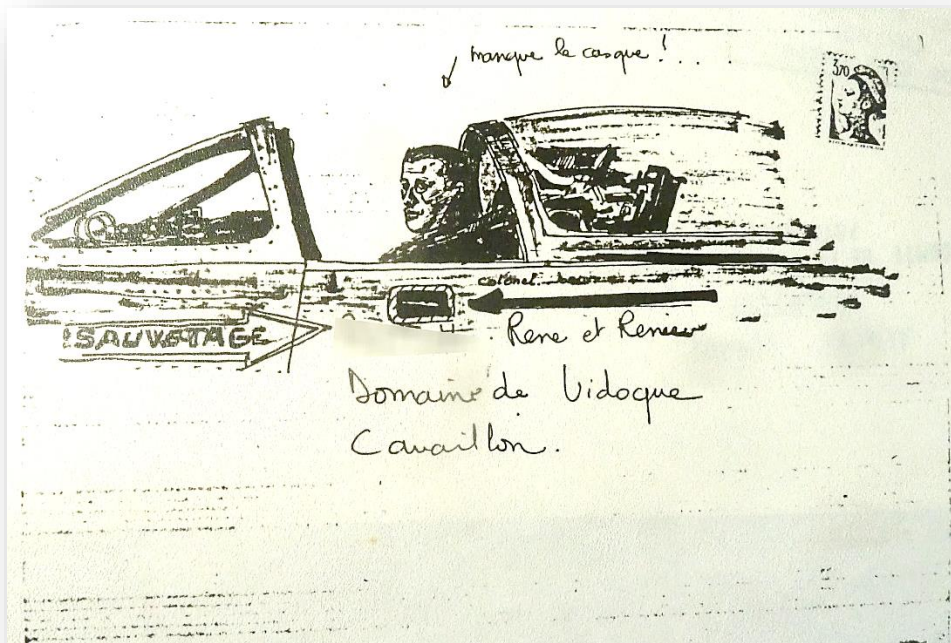 manque le casque ! . . .
3,70
colonel
SAUVETAGE
Rene et Renee
Domaine de Vidoque
Cavaillon.